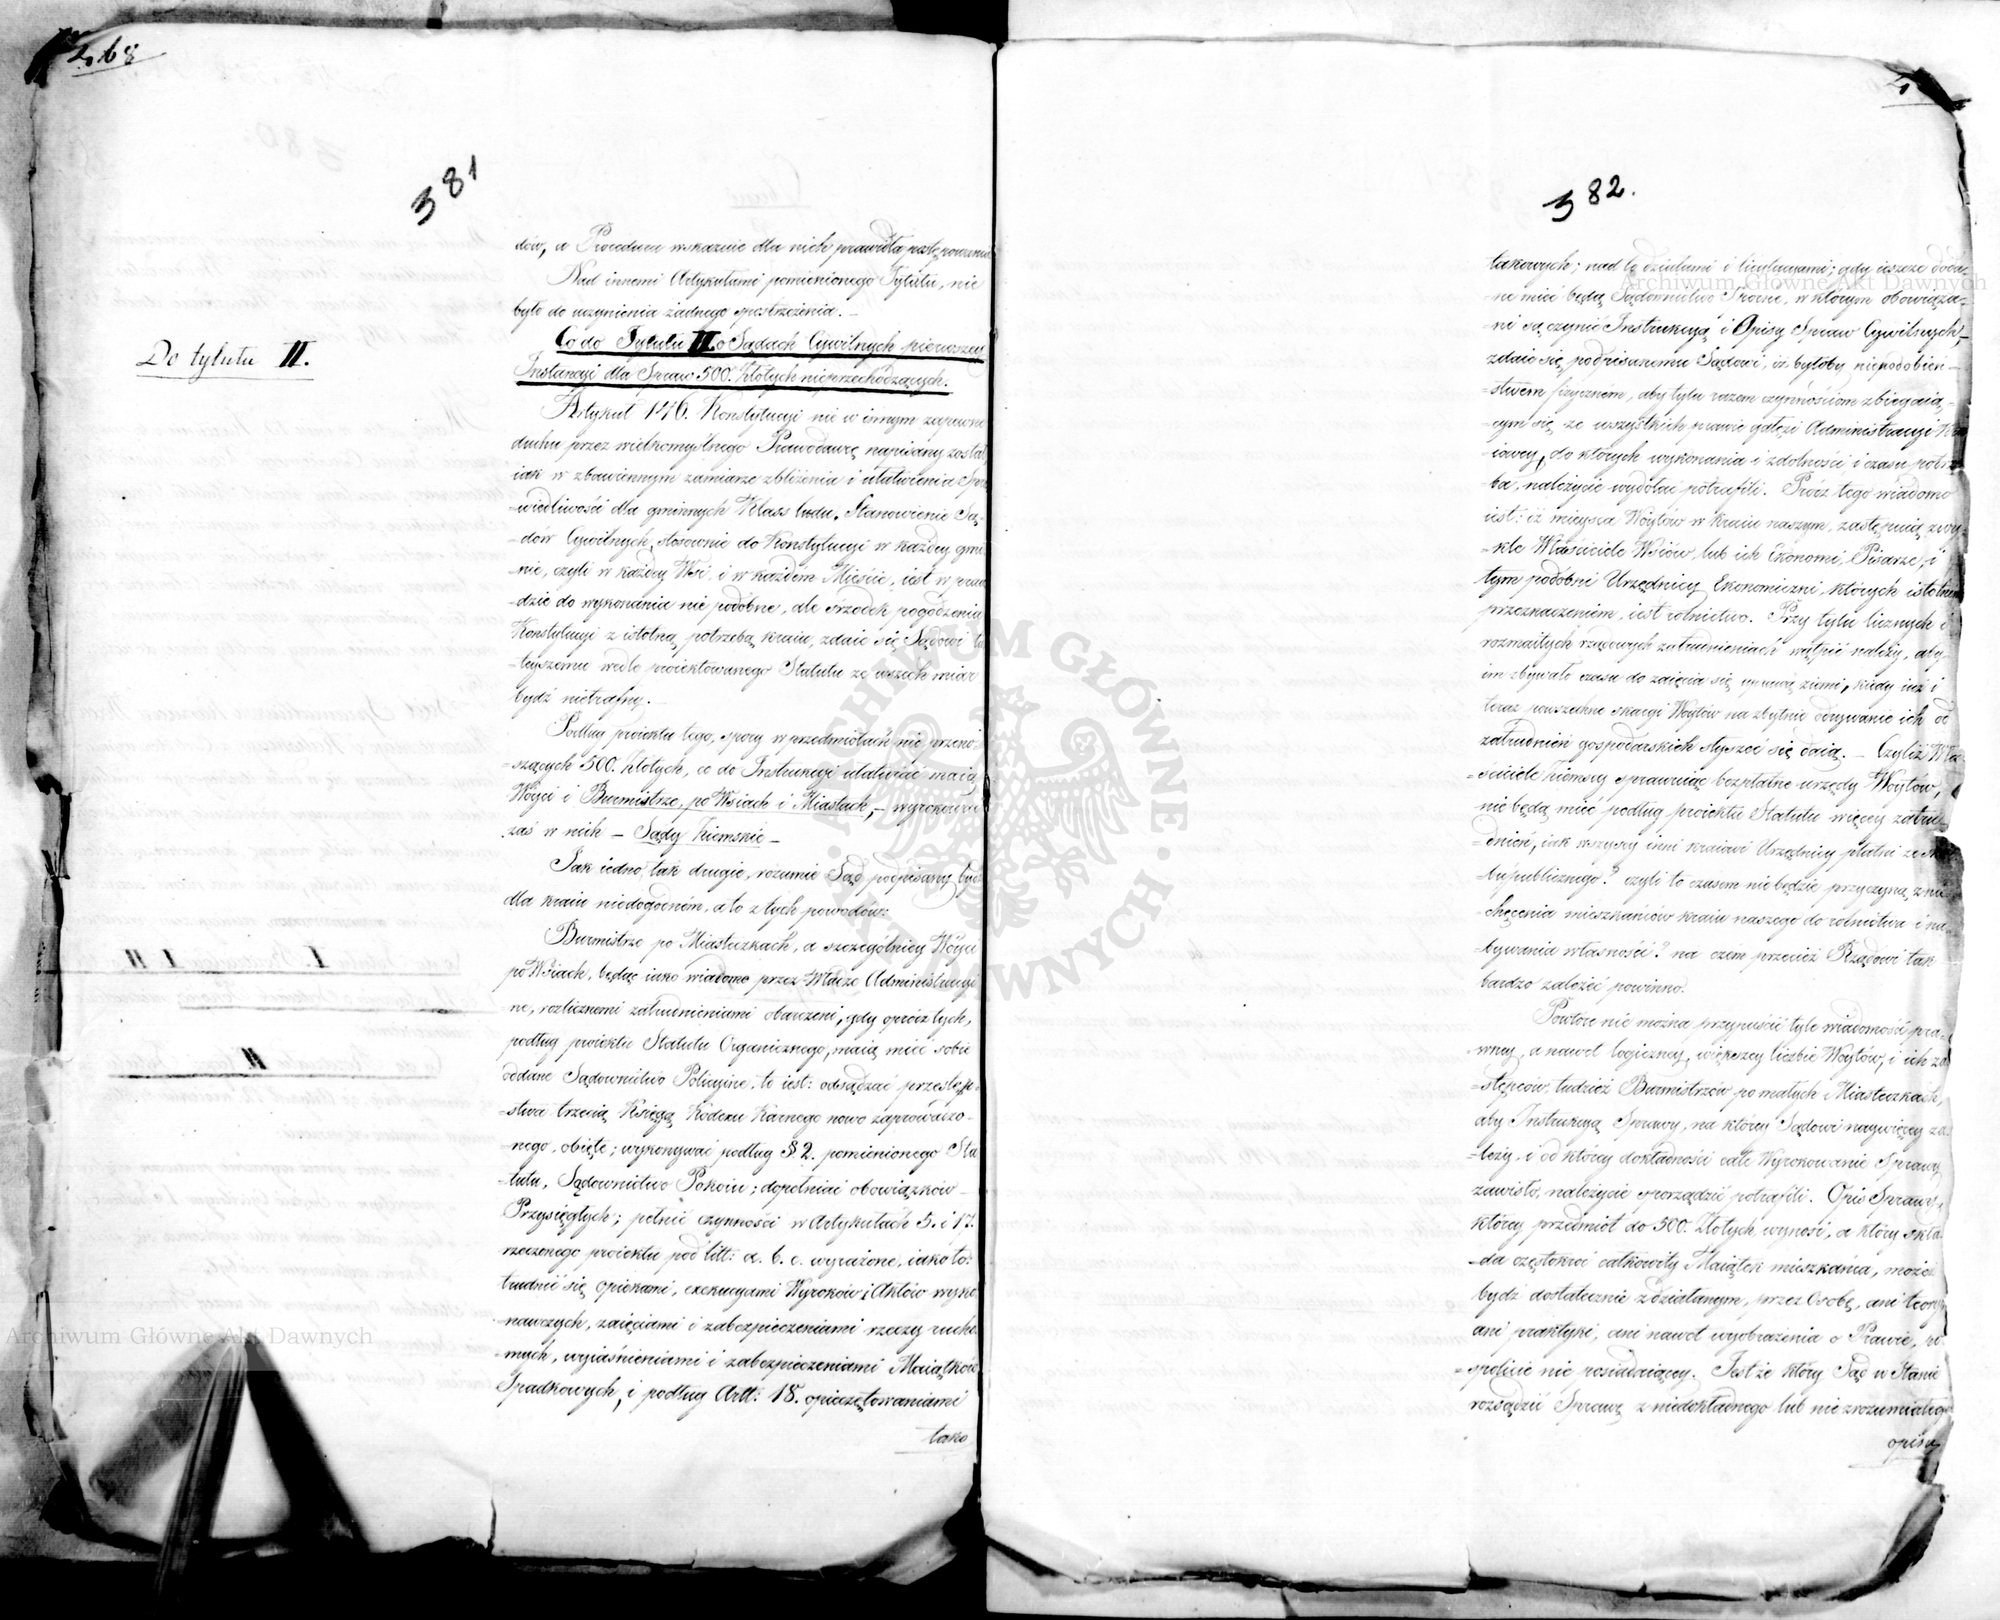 268
381
Do tytułu II.
dów, a Procedura wskazuie dla nich prawidła postępowania
Nad innemi Artykułami pomienionego Tytułu, nie
było do uczynienia żadnego spostrzeżenia. —
Co do Tytułu II. o Sądach Cywilnych pierwszey
Instancyi dla Spraw 500. Złotych nieprzechodzących.
Artykuł 146. Konstytucyi nie w innym zapewne
duchu przez wielkomyślnego Prawodawcę napisany został,
iak w zbawiennym zamiarze zbliżenia i ułatwienia Spra
-wiedliwości dla gminnych Klass ludu. Stanowienie Są-
-dów Cywilnych, stosownie do Konstytucyi w każdey gmi
-nie, czyli w każdey Wsi, i w każdem Mieście, iest w praw
-dzie do wykonania nie podobne, ale środek pogodzenia
Konstytucyi z istotną potrzebą kraiu, zdaie się Sądowi tu
-teyszemu wedle proiektowanego Statutu ze wszech miar
bydź nietrafny. —
Podług proiektu tego, spory w przedmiotach nie przeno
-szących 500. Złotych, co do Instrukcyi ułatwiać maią
Wóyci i Burmistrze, po Wsiach i Miastach, — wyrokować
zaś w nich — Sądy Ziemskie —
Jak iedno, tak drugie, rozumie Sąd podpisany być
dla kraiu niedogodném, a to z tych powodów:
Burmistrze po Miasteczkach, a szczególniey Wóyci
po Wsiach, będąc iako wiadomo przez Władze Administracyi
-ne, rozlicznemi zatrudnieniami obarczeni, gdy oprócz tych,
podług proiektu Statutu Organicznego, maią mieć sobie
oddane Sądownictwo Policyine, to iest: odsądzać przestęp-
-stwa trzecią Księgą Kodexu Karnego nowo zaprowadzo-
-nego, obięte; wykonywać podług § 2. pomienionego Sta
-tutu, Sądownictwo Pokoiu; dopełniać obowiązków
Przysięgłych; pełnić czynności w Artykułach 5. i 17.
rzeczonego proiektu pod litt: a. b. c. wyrażone, iako to:
trudnić się opiekami, exekucyami Wyroków i Aktów wyko
-nawczych, zaięciami i zabezpieczeniami rzeczy rucho
-mych, wyiaśnieniami i zabezpieczeniami Maiątków
Spadkowych, i podług Artt: 18. opieczętowaniami
tako
382.
takowych; nad to działami i licytacyami; gdy ieszcze doda-
-ne mieć będą Sądownictwo Sporne, w którym obowiąza-
-ni są czynić Instrukcyą i Opisy Spraw Cywilnych, —
zdaie się podpisanemu Sądowi, iż byłoby niepodobień-
-stwem fizycznem, aby tylu razem czynnościom zbiegaią-
-cym się ze wszystkich prawie gałęzi Administracyi Kra
-iowey, do których wykonania i zdolności i czasu potrze
-ba, należycie wydołać potrafili. Prócz tego wiadomo
iest: iż mieysca Wóytów w kraiu naszym, zastępuią zwy-
-kle Właściciele Wsiów, lub ich Ekonomi, Pisarze, i
tym podobni Urzędnicy Ekonomiczni, których istotnem
przeznaczeniem, iest rolnictwo. Przy tylu licznych i
rozmaitych rządowych zatrudnieniach wątpić należy, aby
im zbywało czasu do zaięcia się uprawą ziemi, kiedy iuż i
teraz powszechne skargi Wóytów na zbytnie odrywanie ich od
zatrudnień gospodarskich słyszeć się daią. — Czyliż Wła
-ściciele Ziemscy sprawuiąc bezpłatne urzędy Wóytów,
nie będą mieć podług proiektu Statutu więcey zatru-
-dnień, iak wszyscy inni kraiowi Urzędnicy płatni ze Skar
-bu publicznego? czyli to czasem nie będzie przyczyną znie
-chęcenia mieszkańców kraiu naszego do rolnictwa i na-
-bywania własności? na czem przecież Rządowi tak
bardzo zależeć powinno.
Powtóre nie można przypuścić tyle wiadomości pra-
-wney, a nawet logiczney, większey liczbie Wóytów, i ich za
-stępców, tudzież Burmistrzów po małych Miasteczkach,
aby Instrukcyą Sprawy, na którey Sądowi naywięcey za
-leży, i od którey dokładności całe Wyrokowanie Sprawy
zawisło, należycie sporządzić potrafili. Opis Sprawy,
którey przedmiot do 500. Złotych wynosi, a który skła
-da częstokroć całkowity Maiątek mieszkańca, możeż
bydź dostatecznie zdziałanym, przez Osobę, ani teoryi
ani praktyki, ani nawet wyobrażenia o Prawie, po
-spolicie nie posiadaiącey. Jestże który Sąd w Stanie
rozsądzić Sprawę z niedokładnego lub nie zrozumiałego
opisu
Archiwum Główne Akt Dawnych
Archiwum Główne Akt Dawnych
ARCHIWUM GŁÓWNE AKT DAWNYCH